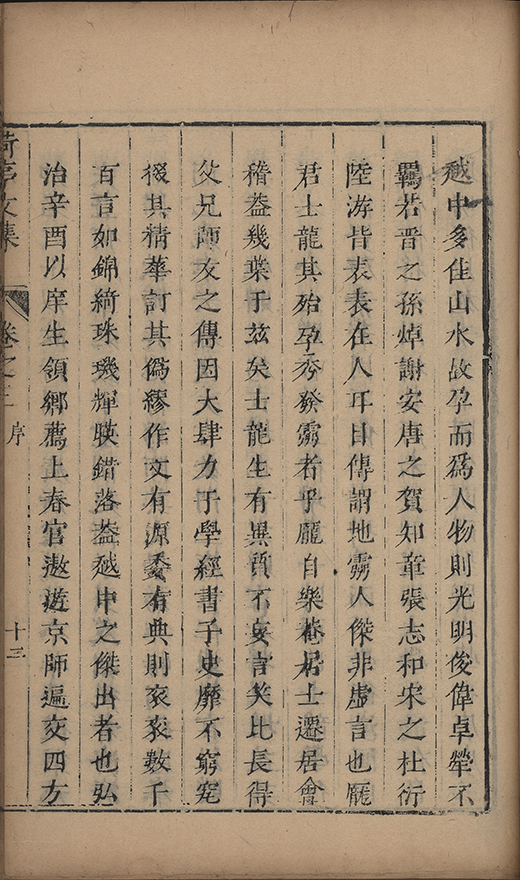 越中多佳山水故孕而爲人物則光明俊偉卓犖不
羈若晋之孫焯謝安唐之賀知章張志和宋之杜衍
陸游皆表表在人耳目傳謂地靈人傑非虛言也龐
君士龍其殆孕秀發靈者乎龐自樂菴居士遷居會
稽葢幾葉于玆矣士龍生有異質不妄言笑比長得
父兄師友之傳因大肆力于學經書子史靡不窮究
掇其精華訂其僞繆作文有源委有典則袞袞數千
百言如錦綺珠璣輝暎錯落葢越中之傑出者也弘
治辛酉以庠生領鄉薦上春官遨遊京師遍交四方
荷亭文集 卷之三 序 十三